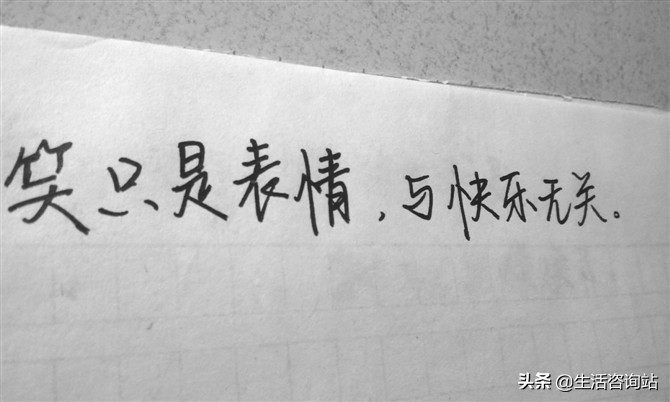 笑只是表情，与快乐无关。
头条 @生活咨询站